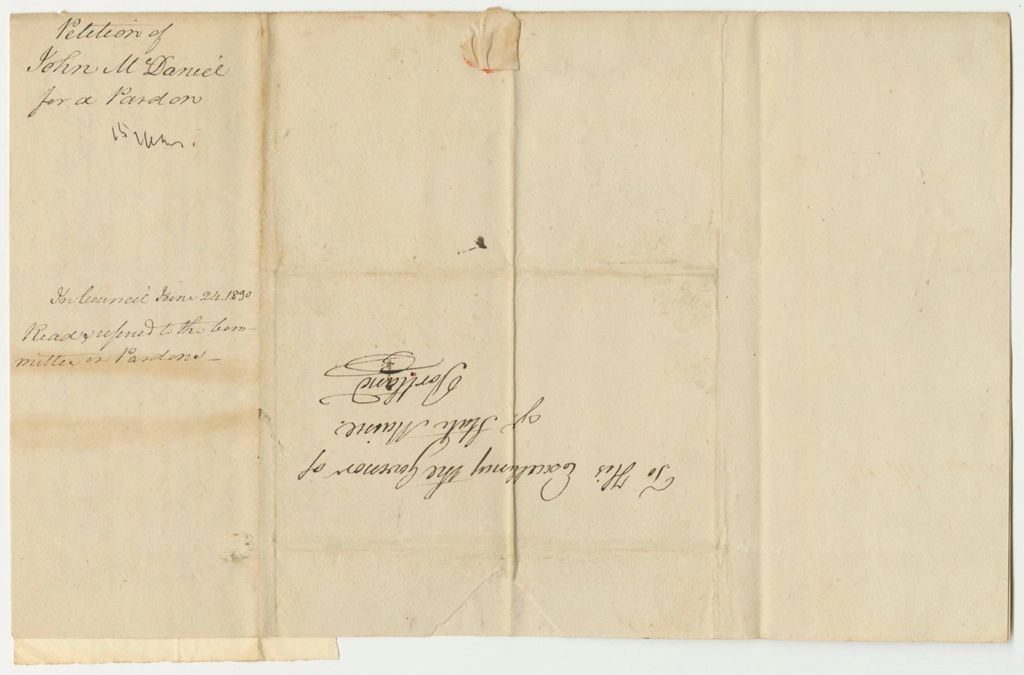 Petition of
John McDaniel
for a Pardon
15
In Council June 24. 1830
Read & referred to the Com-
mittee on Pardons—
To His Excellency the Governor of
State Maine.
Portland